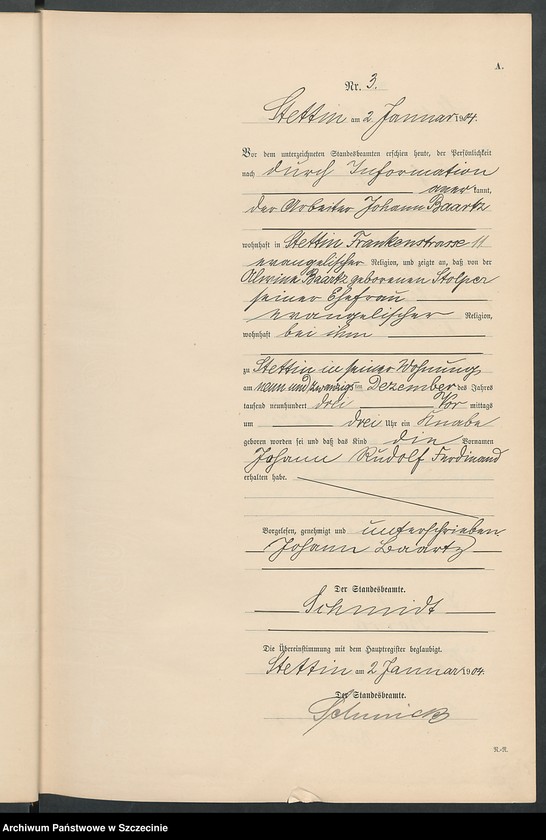 A.
Nr. 3.
Stettin am 2 Januar 1904.
Vor dem unterzeichneten Standesbeamten erschien heute, der Persönlichkeit
nach durch Information
aner kannt,
der Arbeiter Johann Baartz
wohnhaft in Stettin Frankenstrasse 11
evangelischer Religion, und zeigte an, daß von der
Alwine Baartz geborenen Stolper
seiner Ehefrau
evangelischer Religion,
wohnhaft bei ihm
zu Stettin in seiner Wohnung
am neun und zwanzigsten Dezember des Jahres
tausend neunhundert drei Vor mittags
um drei Uhr ein Knabe
geboren worden sei und daß das Kind die Vornamen
Johann Rudolf Ferdinand
erhalten habe.
Vorgelesen, genehmigt und unterschrieben
Johann Baartz
Der Standesbeamte.
Schmidt
Die Übereinstimmung mit dem Hauptregister beglaubigt.
Stettin am 2 Januar 1904.
Der Standesbeamte.
R.-R.
Archiwum Państwowe w Szczecinie